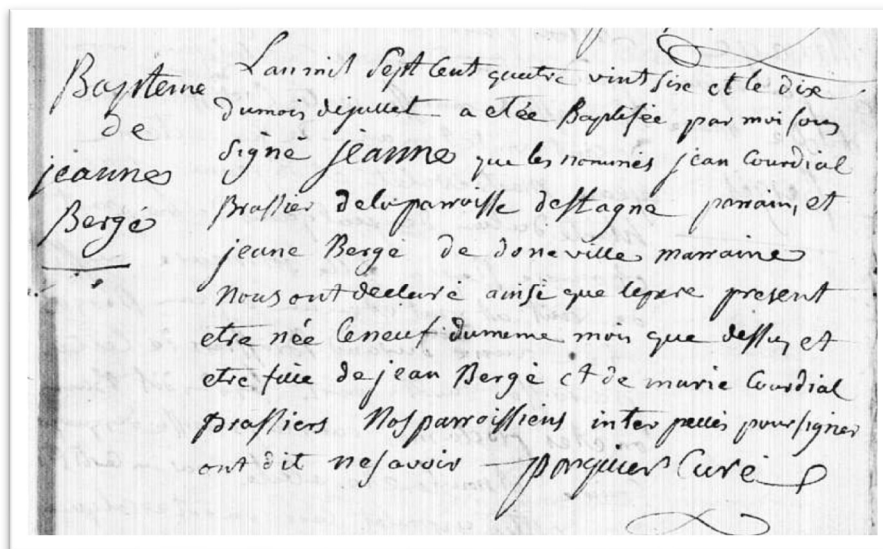 Bapteme
de
jeanne
Bergé
Lan mil Sept Cent quatre vint six et le dix
du mois de jullet a etée Baptisée par moi sous
signé jeanne que les nommés jean Courdial
Brassier de la parroisse destagne parrain, et
jeane Bergé de doneville marraine
Nous ont declaré ainsi que le pere present
etre née le neuf du meme mois que dessus et
etre fille de jean Bergé et de marie Courdial
Brassiers Nos parroissiens interpellés pour signer
ont dit ne savoir Curé